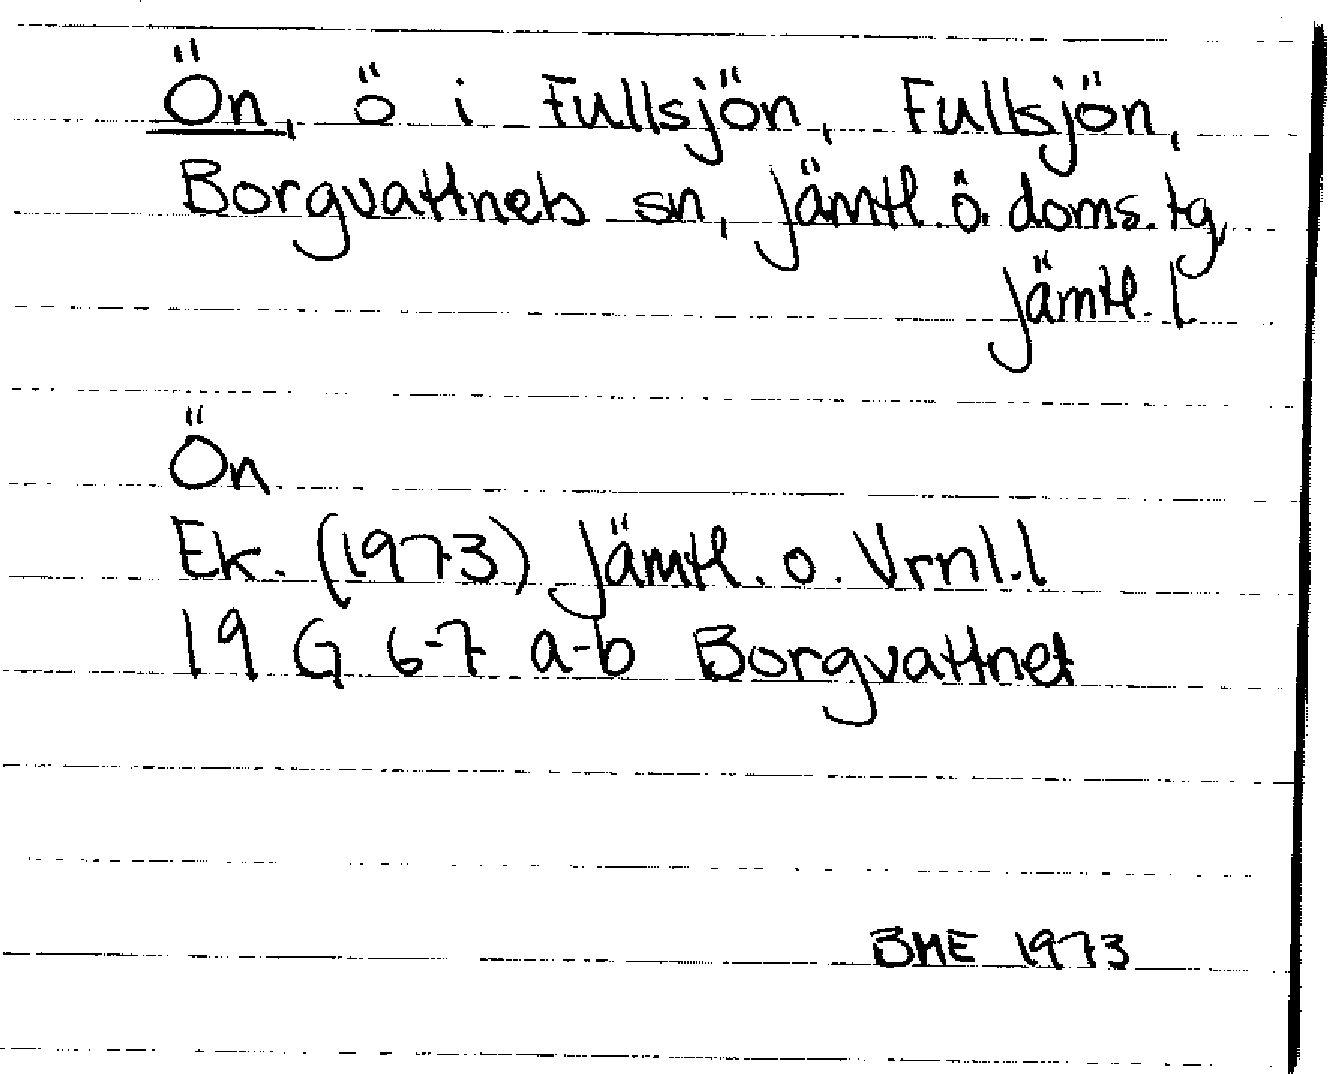 Ön, ö i Fullsjön, Fullsjön,
Borgvattnets sn, Jämtl. ö. doms. tg,
Jämtl. l
Ön
Ek. (1973) Jämtl. o. Vrnl. l
19 G 6-7 a-b Borgvattnet
BME 1973